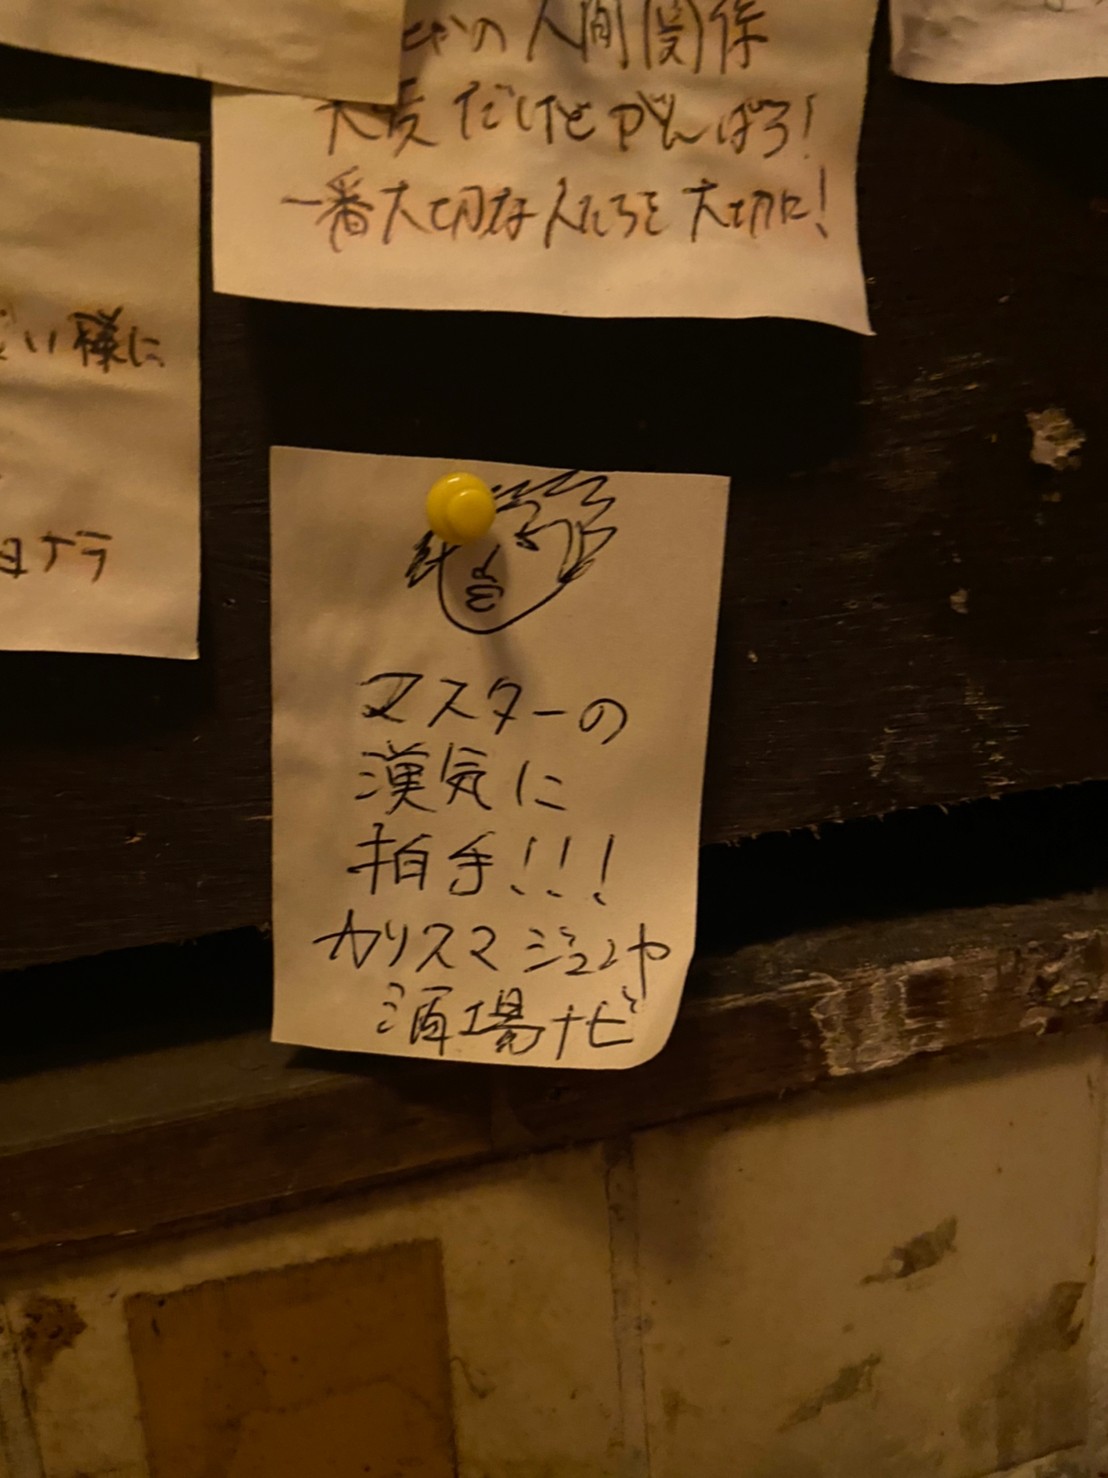 の人間関係
大変だけどがんばろ!
一番大切な人たちを大切に!
い様に
ナラ
マスターの
漢気に
拍手!!!
カリスマジュンヤ
酒場ナビ